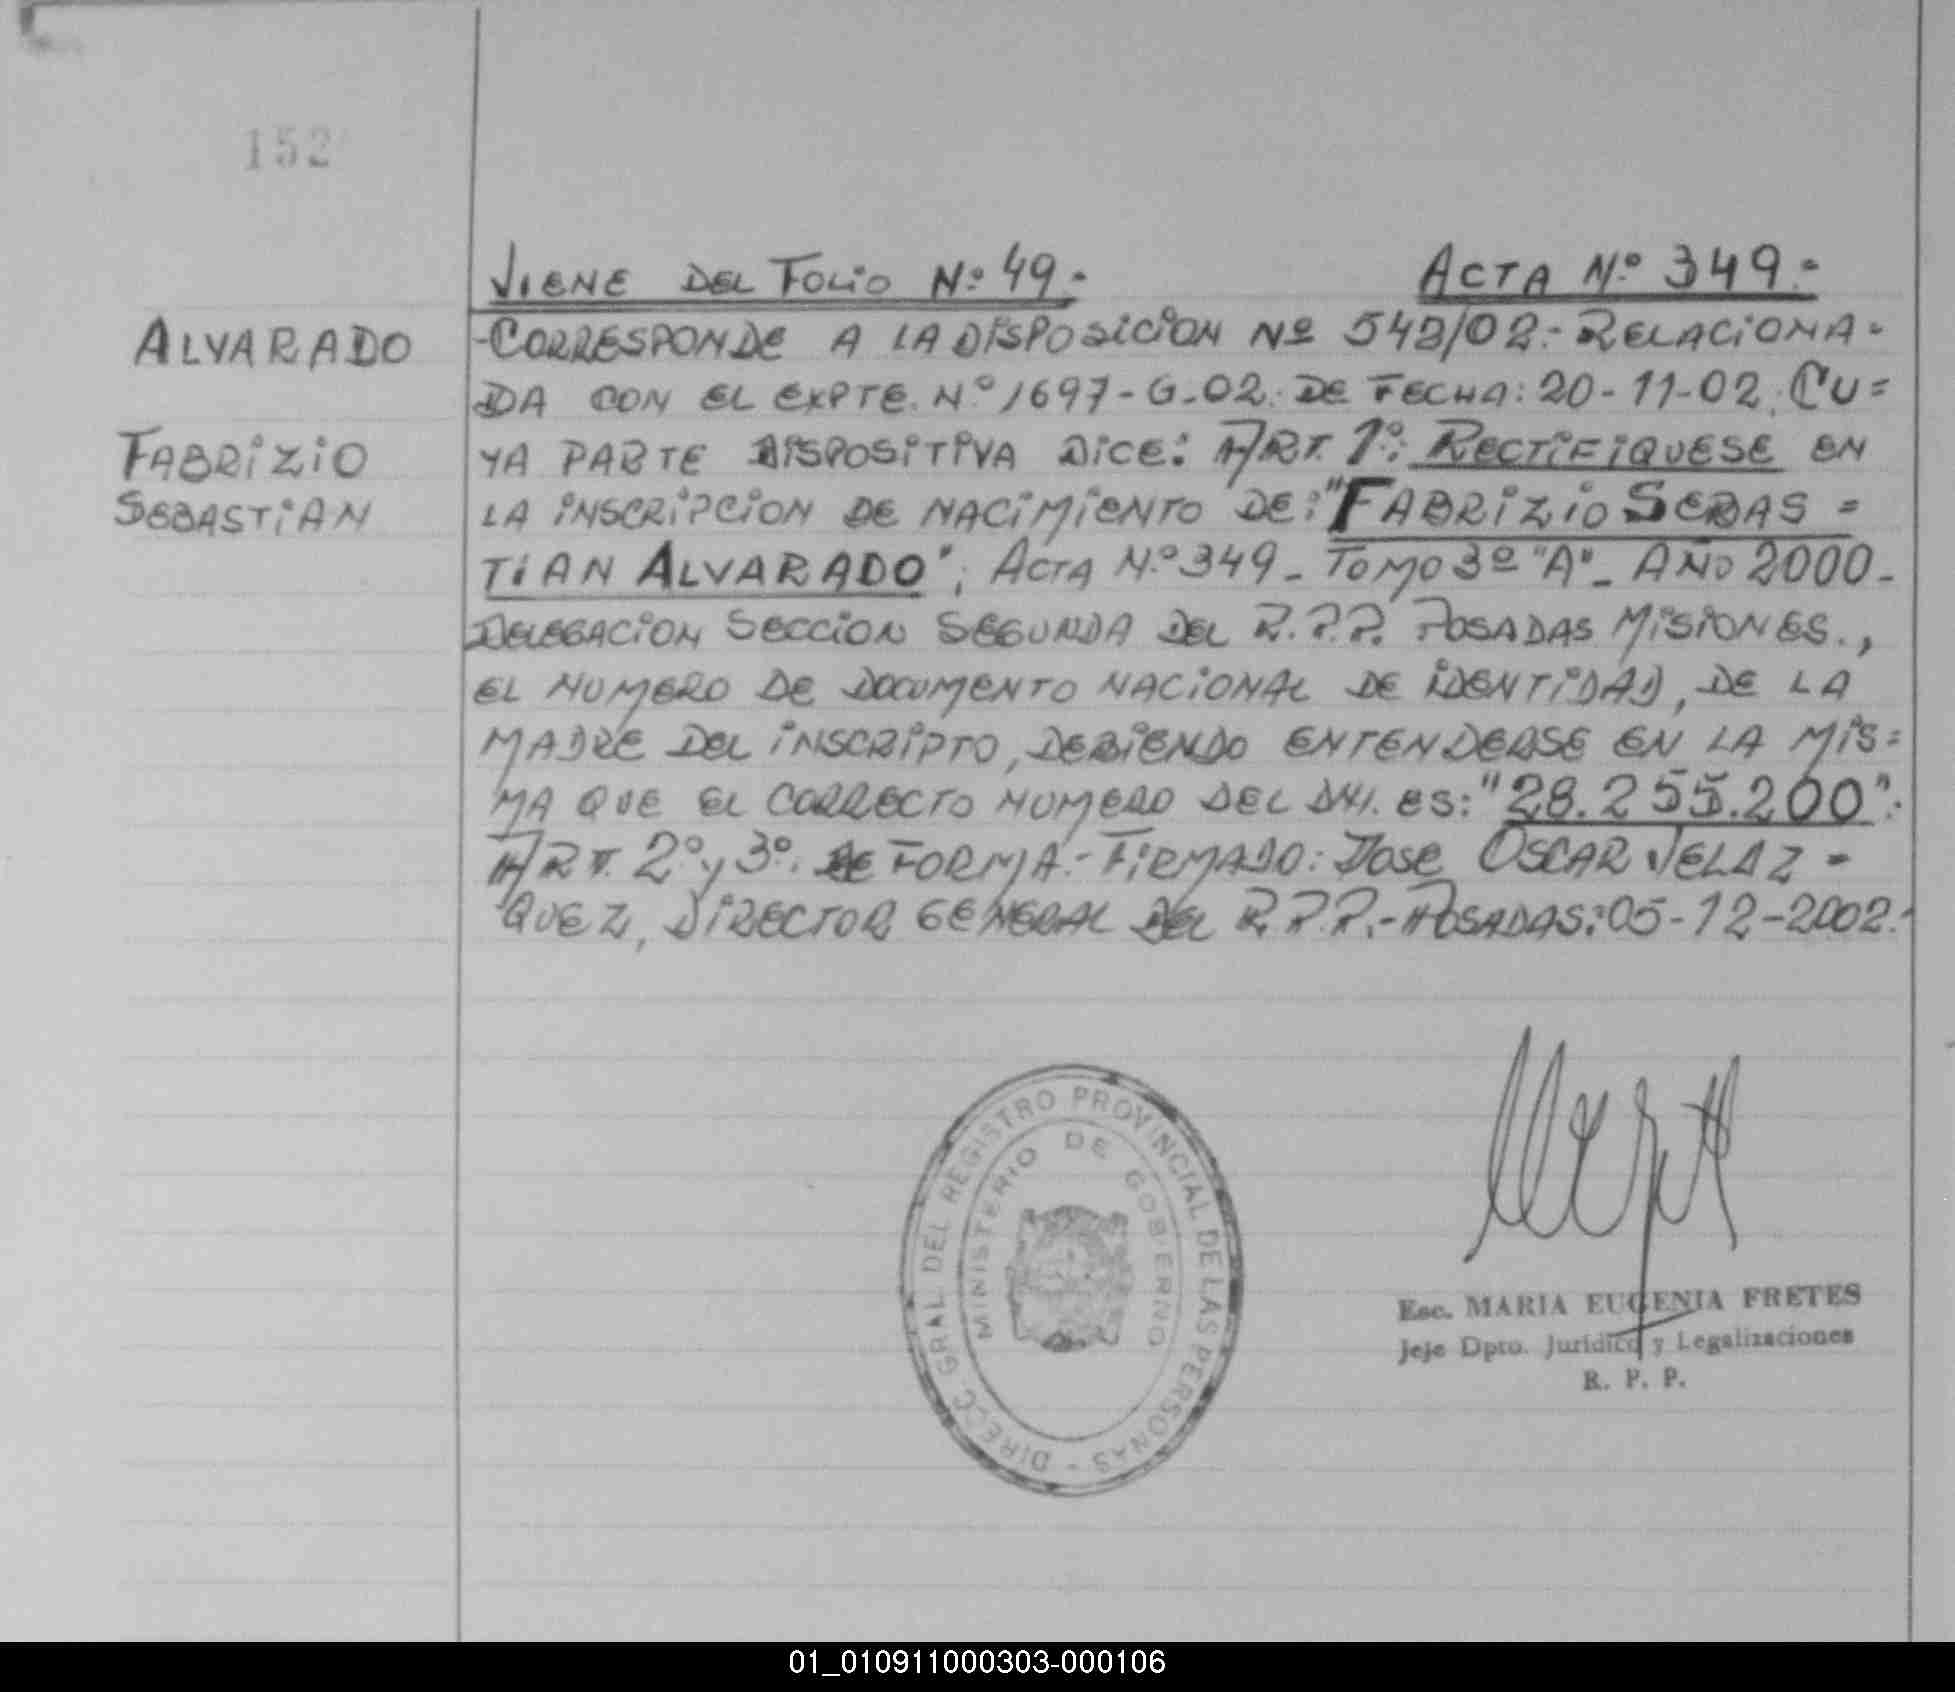 152
VIENE DEL FOLIO Nº 49.-
ACTA Nº 349.-
ALVARADO
FABRIZIO
SEBASTIAN
-CORRESPONDE A LA DISPOSICION Nº 542/02.- RELACIONA-
DA CON EL EXPTE. Nº 1697-G-02. DE FECHA: 20-11-02. CU=
YA PARTE DISPOSITIVA DICE: ART. 1º: RECTIFIQUESE EN
LA INSCRIPCION DE NACIMIENTO DE: "FABRIZIO SEBAS=
TIAN ALVARADO", ACTA Nº 349 - TOMO 3º "A" - AÑO 2000 -
DELEGACION SECCION SEGUNDA DEL R.P.P. POSADAS MISIONES.,
EL NUMERO DE DOCUMENTO NACIONAL DE IDENTIDAD, DE LA
MADRE DEL INSCRIPTO, DEBIENDO ENTENDERSE EN LA MIS=
MA QUE EL CORRECTO NUMERO DEL DNI. ES: "28.255.200".
ART. 2º y 3º. DE FORMA.- FIRMADO: JOSE OSCAR VELAZ-
QUEZ, DIRECTOR GENERAL DEL R.P.P.- POSADAS: 05-12-2002.-
DIRECC. GRAL. DEL REGISTRO PROVINCIAL DE LAS PERSONAS -
MINISTERIO DE GOBIERNO
Esc. MARIA EUGENIA FRETES
Jeje Dpto. Jurídico y Legalizaciones
R. P. P.
01_010911000303-000106